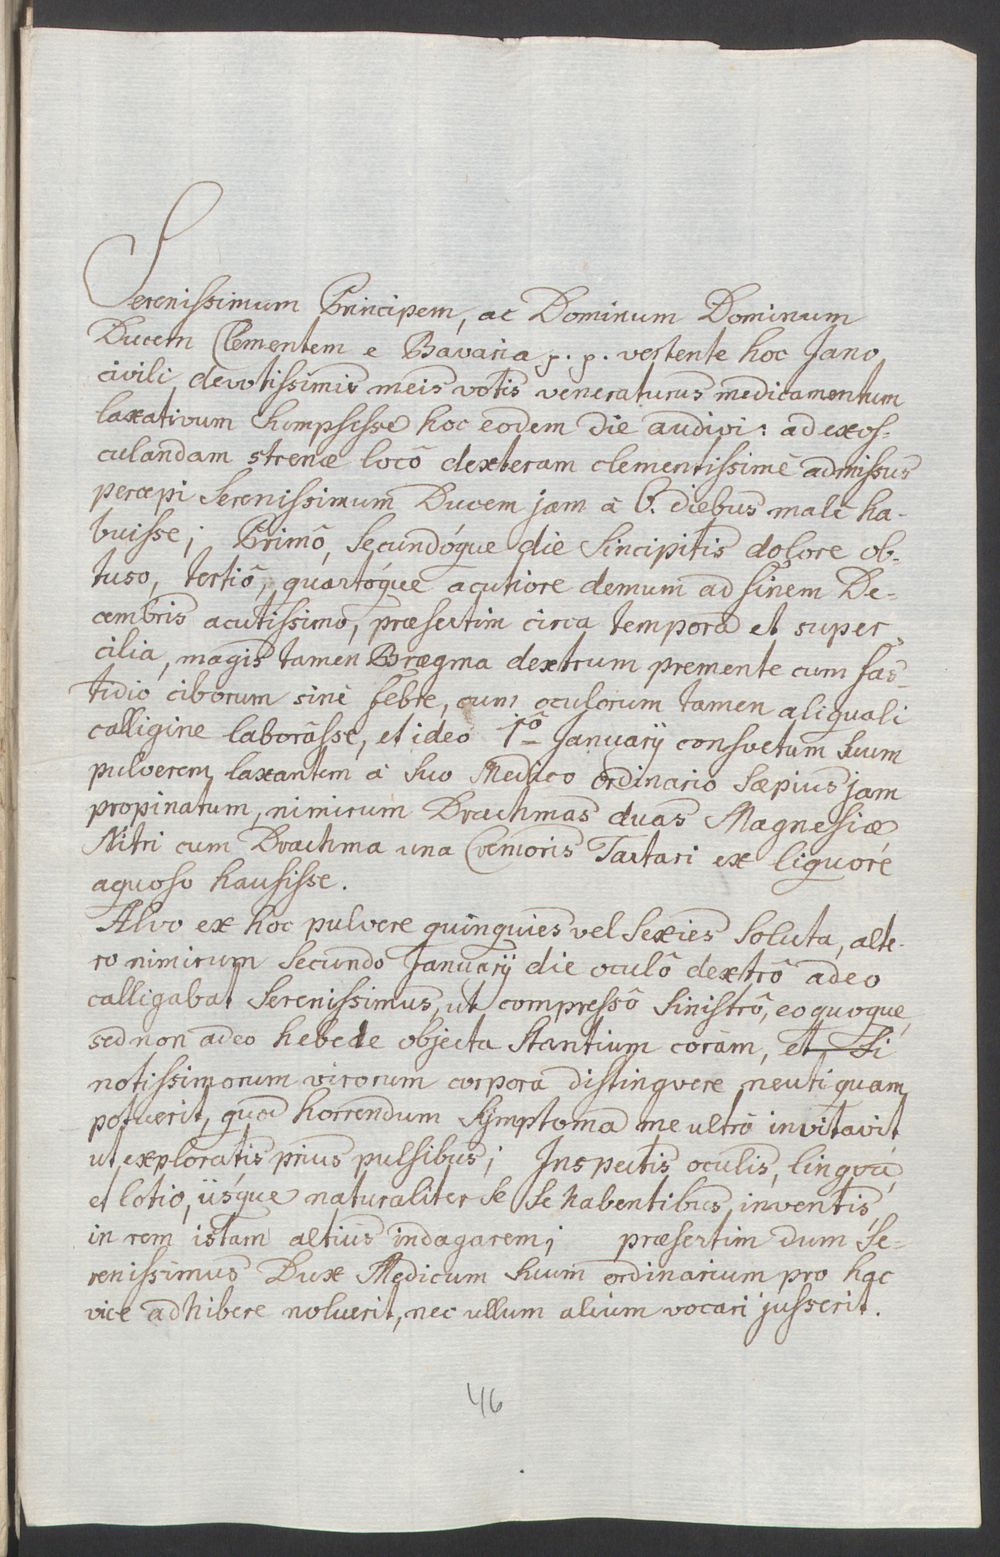 Serenissimum Principem, ac Dominum Dominum
Ducem Clementem e Bavaria p. p. vertente hoc Jano
civili, devotissimis meis votis veneraturus medicamentum
laxativum sumpsisse hoc eodem die audivi: ad exos-
culandam strenæ locô dexteram clementissimè admissus
percepi Serenissimum Ducem jam à 6. diebus malè ha-
buisse; Primô, Secundóque die Sincipitis dolore ob-
tuso, tertiô, quartóque acutiore demum ad finem De-
cembris acutissimo, præsertim circa tempora et super
cilia, magis tamen Brægma dextrum premente cum fas-
tidio ciborum sinè febre, cum oculorum tamen aliquali
calligine laborâsse, et ideo 1ô Januarÿ consvetum suum
pulverem laxantem à suo Medico ordinario sæpius jam
propinatum, nimirum Drachmas duas Magnesiæ
Nitri cum Drachma una Cremoris Tartari ex liquore
aquoso hausisse.
Alvo ex hoc pulvere quinquies vel Sexies Soluta, alte-
ro nimirum Secundo Januarÿ die oculô dextrô adeo
calligabat Serenissimus, ut compressô Sinistrô, eo quoque,
sed non adeo hebete objecta Stantium coràm, et Si
notissimorum virorum corpora distingvere neutiquam
potuerit, quod horrendum Sÿmptoma me ultrò invitavit
ut exploratis prius pulsibus; Inspectis oculis, linguâ,
et lotio, iisque naturaliter se se habentibus, inventis,
in rem istam altius indagarem; præsertim dum Se-
renissimus Dux Medicum suum ordinarium pro hac
vice adhibere noluerit, nec ullum alium vocari jusserit.
46